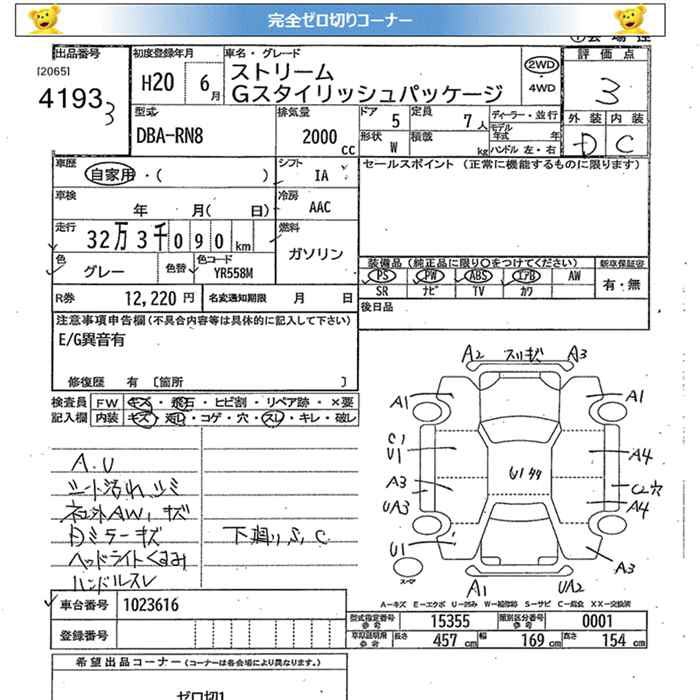 完全ゼロ切りコーナー
出品番号
[2065]
4193
3
初度登録年月
H20 6月
車名・グレード
ストリーム
Gスタイリッシュパッケージ
2WD
・
4WD
評価点
3
外装 内装
D C
型式
DBA-RN8
排気量
2000
cc
ドア 5
定員 7人
形状 W
積載 kg
ディーラー・並行
モデル年式 年
ハンドル 左・右
車歴
自家用・( )
シフト
IA
セールスポイント (正常に機能するものに限ります)
車検
年 月( 日)
冷房
AAC
走行
32万3千090km
燃料
ガソリン
色
グレー
色替
色コード
YR558M
装備品(純正品に限り○をつけてください)
新車保証書
PS PW ABS エアB AW
SR ナビ TV カワ
有・無
R券 12,220円
名変通知期限 月 日
後日品
注意事項申告欄(不具合内容等は具体的に記入して下さい)
E/G異音有
修復歴 有 [箇所 ]
検査員
記入欄
FW キズ・飛石・ヒビ割・リペア跡・×要
内装 キズ・汚れ・コゲ・穴・スレ・キレ・破レ
A.U
シート汚れ、シミ
ネコ外AW、キズ
Dミラーキズ
ヘッドライトくるみ
ハンドルスレ
下廻り、S、C
A2 スリキズ A3
A1 A1
C1
U1
A4
A3
UA3
C2穴
A4
U1
A3
A1 UA2
A-キズ E-エクボ U-凹み W-補修跡 S-サビ C-腐食 XX-交換済
車台番号 1023616
登録番号
型式指定番号
参考
15355
類別区分番号
参考
0001
長さ 457cm 幅 169cm 高さ 154cm
希望出品コーナー(コーナーは各会場により異なります。)
ゼロ切1